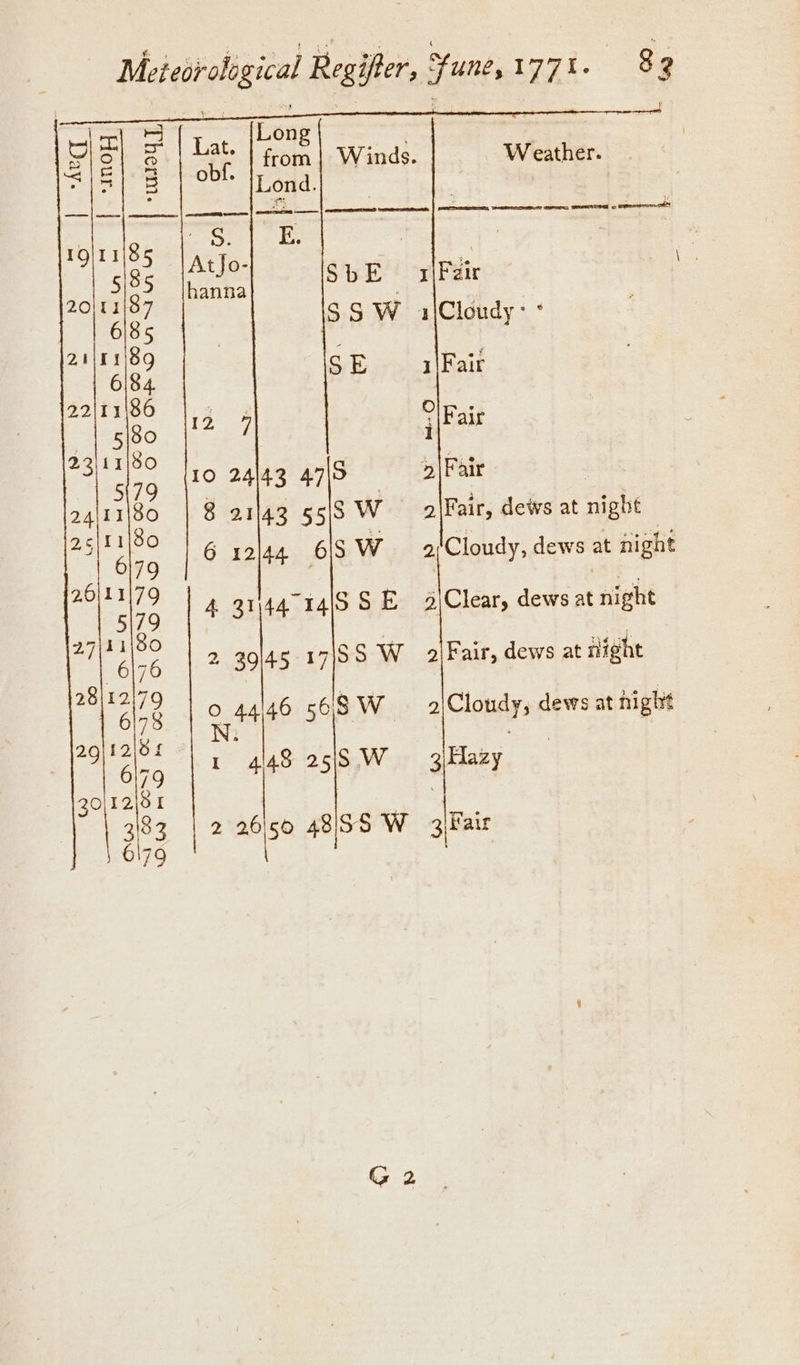 Meteorological Regiſter, June, 1771. 83
Day. | Hour. | Therm. | Lat. obſ. | Long from Lond. | Winds. | Weather.
S. E.
19 11 85 At Jo- SbE 1 Fair
5 85 hanna
20 11 87 SSW 1 Cloudy
6 85
21 11 89 SE 1 Fair
6 84
22 11 86 12 7 0 Fair
5 80 1
23 11 80 10 24 43 47 S 2 Fair
5 79
24 11 80 8 21 43 55 SW 2 Fair, dews at night
25 11 80 6 12 44 6 SW 2 Cloudy, dews at night
6 79
26 11 79 4 31 44 14 SSE 2 Clear, dews at night
5 79
27 11 80 2 39 45 17 SSW 2 Fair, dews at night
6 76
28 12 79 0 44 46 56 SW 2 Cloudy, dews at night
6 78 N.
29 12 81 1 4 48 25 SW 3 Hazy
6 79
30 12 81
3 83 2 26 50 48 SSW 3 Fair
6 79
G 2